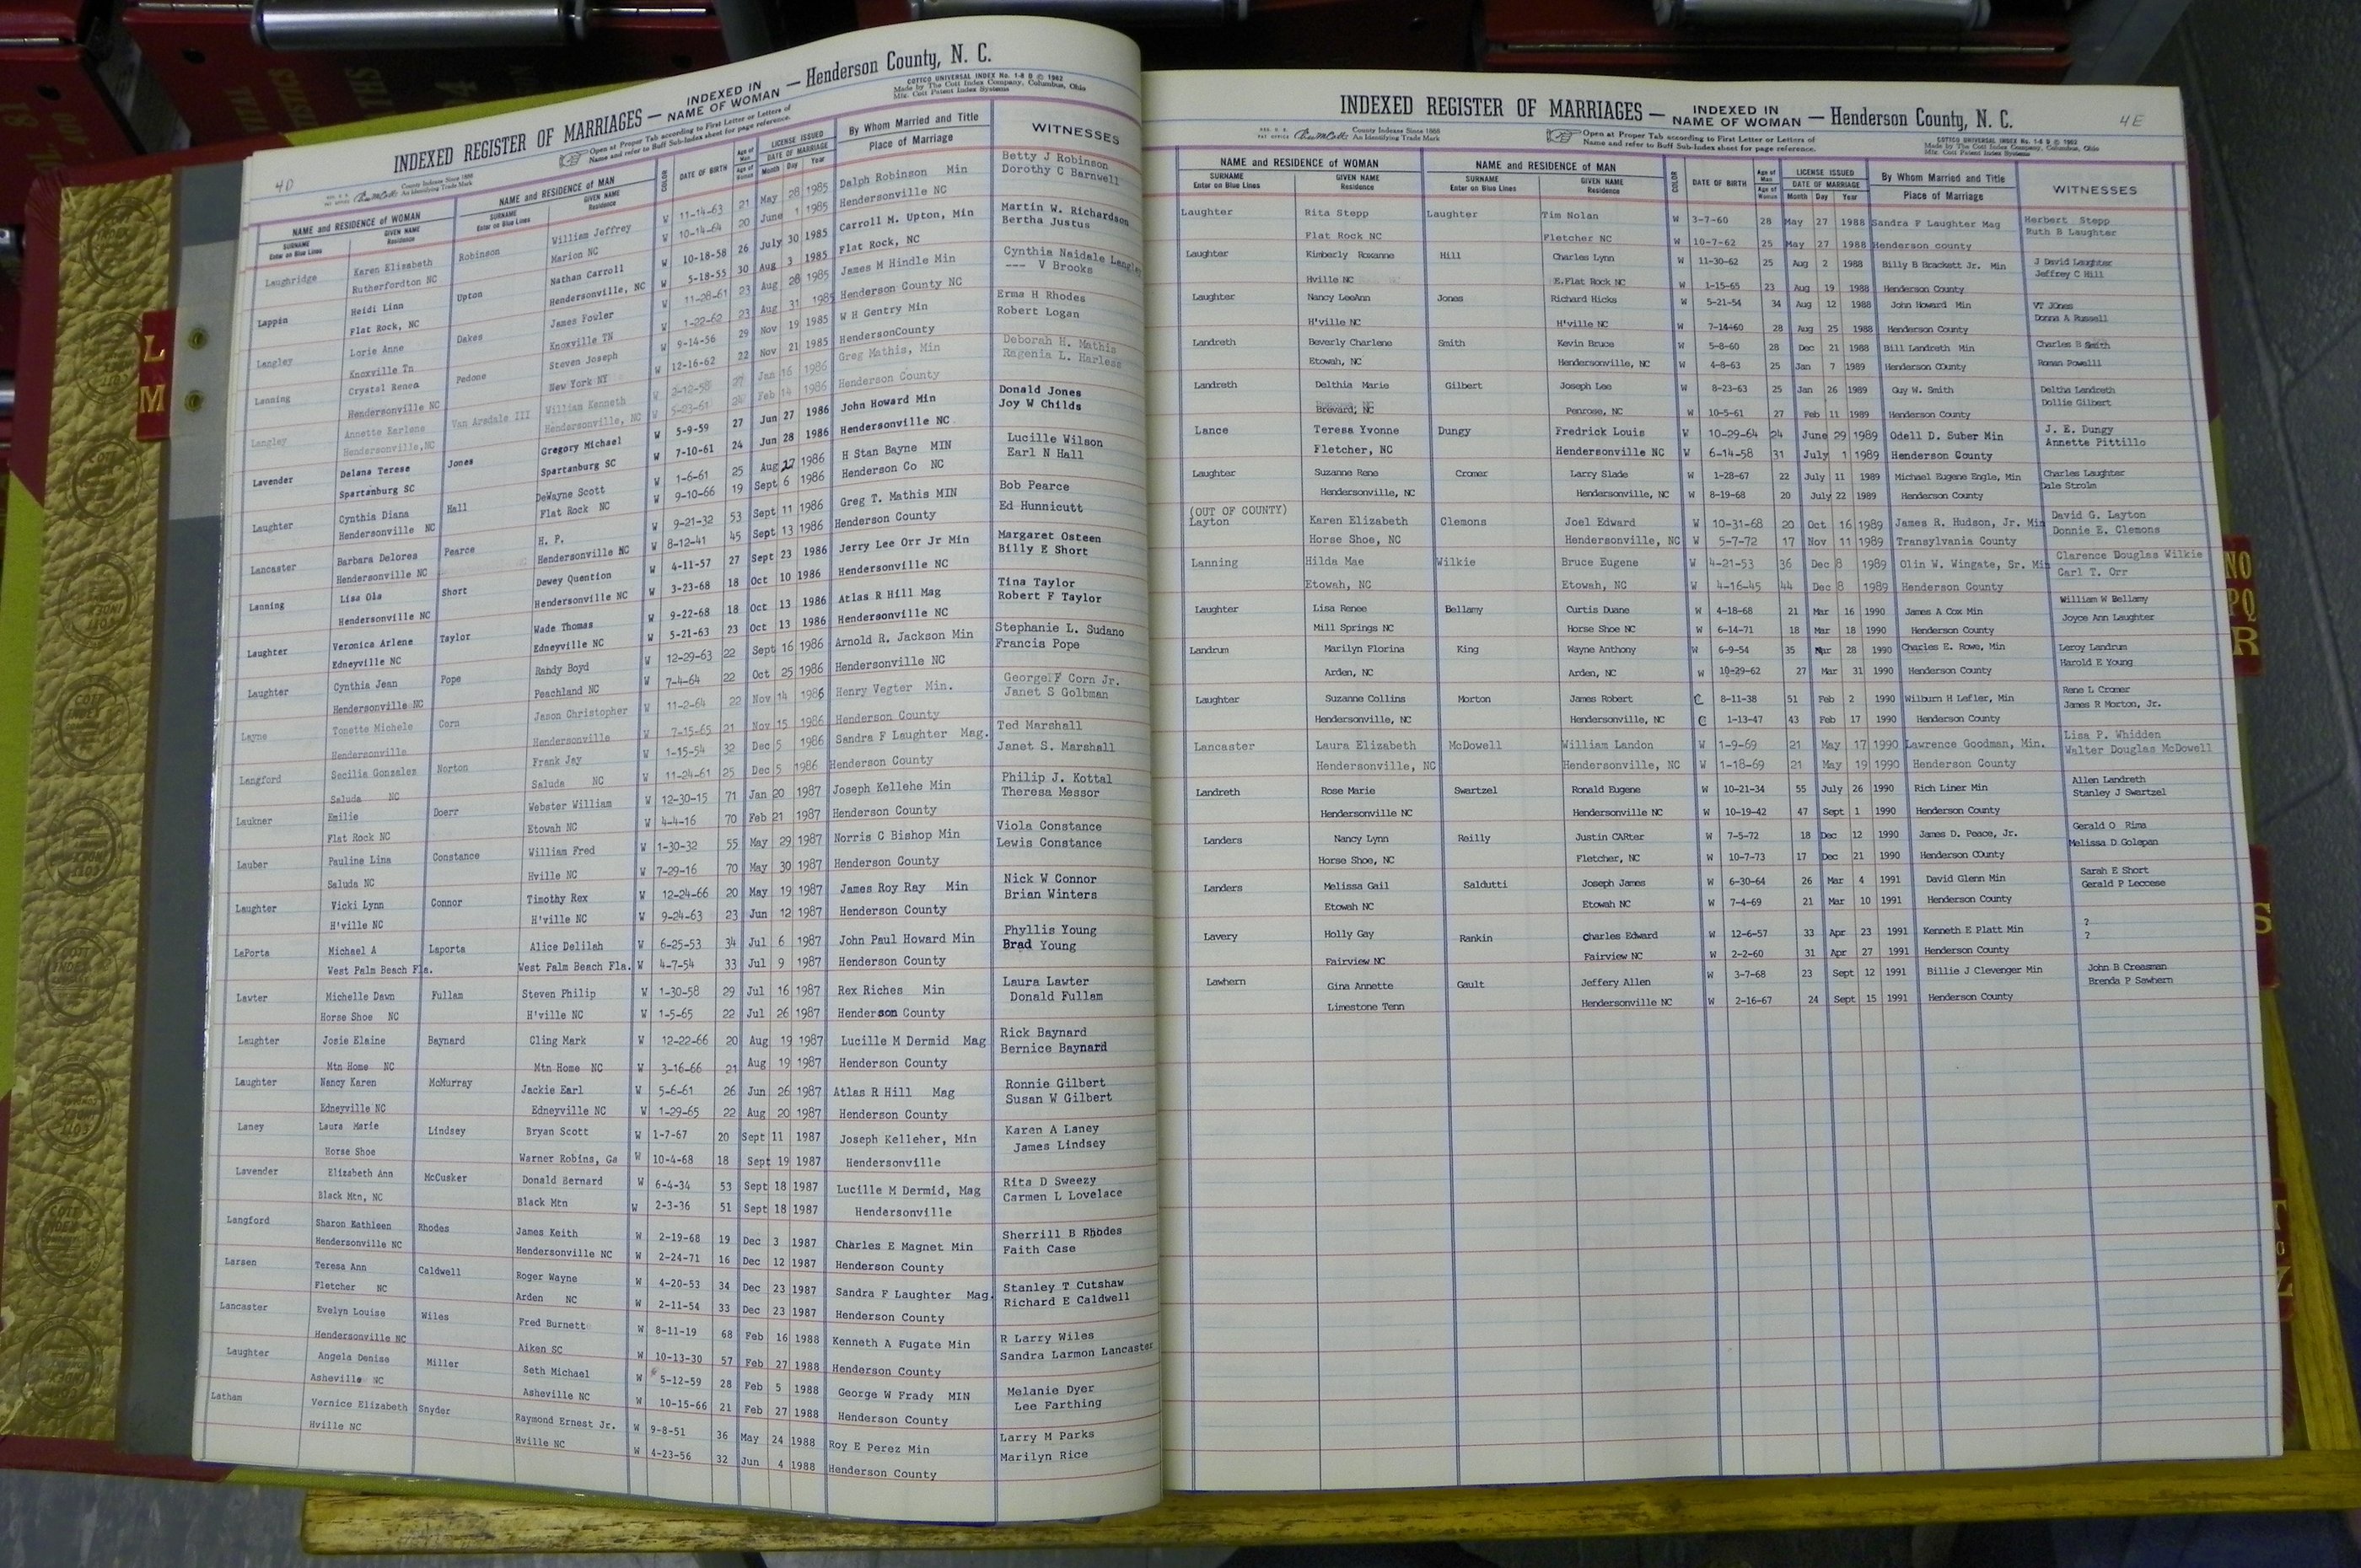 4D
INDEXED REGISTER OF MARRIAGES — INDEXED IN NAME OF WOMAN — Henderson County, N. C.
COTTCO UNIVERSAL INDEX No. 1-8 D © 1962
Made by The Cott Index Company, Columbus, Ohio
Mfg. Cott Patent Index Systems
County Indexes Since 1888
An Identifying Trade Mark
Open at Proper Tab according to First Letter or Letters of
Name and refer to Buff Sub-Index sheet for page reference.
NAME and RESIDENCE of WOMAN NAME and RESIDENCE of MAN COLOR DATE OF BIRTH Age of Man LICENSE ISSUED By Whom Married and Title WITNESSES
SURNAME Enter on Blue Lines GIVEN NAME Residence SURNAME Enter on Blue Lines GIVEN NAME Residence Age of Woman DATE OF MARRIAGE Month Day Year Place of Marriage
Laughridge Karen Elizabeth Robinson William Jeffrey W 11-14-63 21 May 28 1985 Dalph Robinson Min Betty J Robinson
Rutherfordton NC Marion NC W 10-14-64 20 June 1 1985 Hendersonville NC Dorothy C Barnwell
Lappin Heidi Linn Upton Nathan Carroll W 10-18-58 26 July 30 1985 Carroll M. Upton, Min Martin W. Richardson
Flat Rock, NC Hendersonville, NC W 5-18-55 30 Aug 3 1985 Flat Rock, NC Bertha Justus
Langley Lorie Anne Oakes James Fowler W 11-28-61 23 Aug 28 1985 James M Hindle Min Cynthia Naidale Langley
Knoxville Tn Knoxville TN W 1-22-62 23 Aug 31 1985 Henderson County NC --- V Brooks
Lanning Crystal Renea Pedone Steven Joseph W 9-14-56 29 Nov 19 1985 W H Gentry Min Erma H Rhodes
Hendersonville NC New York NY W 12-16-62 22 Nov 21 1985 HendersonCounty Robert Logan
Langley Annette Earlene Van Arsdale III William Kenneth W 2-12-58 27 Jan 16 1986 Greg Mathis, Min Deborah H. Mathis
Hendersonville,NC Hendersonville, NC W 5-23-61 24 Feb 14 1986 Henderson County Ragenia L. Harless
Lavender Delana Terese Jones Gregory Michael W 5-9-59 27 Jun 27 1986 John Howard Min Donald Jones
Spartanburg SC Spartanburg SC W 7-10-61 24 Jun 28 1986 Hendersonville NC Joy W Childs
Laughter Cynthia Diana Hall DeWayne Scott W 1-6-61 25 Aug 27 1986 H Stan Bayne MIN Lucille Wilson
Hendersonville NC Flat Rock NC W 9-10-66 19 Sept 6 1986 Henderson Co NC Earl N Hall
Lancaster Barbara Delores Pearce H. P. W 9-21-32 53 Sept 11 1986 Greg T. Mathis MIN Bob Pearce
Hendersonville NC Hendersonville NC W 8-12-41 45 Sept 13 1986 Henderson County Ed Hunnicutt
Lanning Lisa Ola Short Dewey Quention W 4-11-57 27 Sept 23 1986 Jerry Lee Orr Jr Min Margaret Osteen
Hendersonville NC Hendersonville NC W 3-23-68 18 Oct 10 1986 Hendersonville NC Billy E Short
Laughter Veronica Arlene Taylor Wade Thomas W 9-22-68 18 Oct 13 1986 Atlas R Hill Mag Tina Taylor
Edneyville NC Edneyville NC W 5-21-63 23 Oct 13 1986 Hendersonville NC Robert F Taylor
Laughter Cynthia Jean Pope Randy Boyd W 12-29-63 22 Sept 16 1986 Arnold R. Jackson Min Stephanie L. Sudano
Hendersonville NC Peachland NC W 7-4-64 22 Oct 25 1986 Hendersonville NC Francis Pope
Layne Tonette Michele Corn Jason Christopher W 11-2-64 22 Nov 14 1986 Henry Vegter Min. George F Corn Jr.
Hendersonville Hendersonville W 7-15-65 21 Nov 15 1986 Henderson County Janet S Golbman
Langford Secilia Gonzalez Norton Frank Jay W 1-15-54 32 Dec 5 1986 Sandra F Laughter Mag. Ted Marshall
Saluda NC Saluda NC W 11-24-61 25 Dec 5 1986 Henderson County Janet S. Marshall
Laukner Emilie Doerr Webster William W 12-30-15 71 Jan 20 1987 Joseph Kellehe Min Philip J. Kottal
Flat Rock NC Etowah NC W 4-4-16 70 Feb 21 1987 Henderson County Theresa Messor
Lauber Pauline Lina Constance William Fred W 1-30-32 55 May 29 1987 Norris C Bishop Min Viola Constance
Saluda NC Hville NC W 7-29-16 70 May 30 1987 Henderson County Lewis Constance
Laughter Vicki Lynn Connor Timothy Rex W 12-24-66 20 May 19 1987 James Roy Ray Min Nick W Connor
H'ville NC H'ville NC W 9-24-63 23 Jun 12 1987 Henderson County Brian Winters
LaPorta Michael A Laporta Alice Delilah W 6-25-53 34 Jul 6 1987 John Paul Howard Min Phyllis Young
West Palm Beach Fla. West Palm Beach Fla. W 4-7-54 33 Jul 9 1987 Henderson County Brad Young
Lawter Michelle Dawn Fullam Steven Philip W 1-30-58 29 Jul 16 1987 Rex Riches Min Laura Lawter
Horse Shoe NC H'ville NC W 1-5-65 22 Jul 26 1987 Henderson County Donald Fullam
Laughter Josie Elaine Baynard Cling Mark W 12-22-66 20 Aug 19 1987 Lucille M Dermid Mag Rick Baynard
Mtn Home NC Mtn Home NC W 3-16-66 21 Aug 19 1987 Henderson County Bernice Baynard
Laughter Nancy Karen McMurray Jackie Earl W 5-6-61 26 Jun 26 1987 Atlas R Hill Mag Ronnie Gilbert
Edneyville NC Edneyville NC W 1-29-65 22 Aug 20 1987 Henderson County Susan W Gilbert
Laney Laura Marie Lindsey Bryan Scott W 1-7-67 20 Sept 11 1987 Joseph Kelleher, Min Karen A Laney
Horse Shoe Warner Robins, Ga W 10-4-68 18 Sept 19 1987 Hendersonville James Lindsey
Lavender Elizabeth Ann McCusker Donald Bernard W 6-4-34 53 Sept 18 1987 Lucille M Dermid, Mag Rita D Sweezy
Black Mtn, NC Black Mtn W 2-3-36 51 Sept 18 1987 Hendersonville Carmen L Lovelace
Langford Sharon Kathleen Rhodes James Keith W 2-19-68 19 Dec 3 1987 Charles E Magnet Min Sherrill B Rhodes
Hendersonville NC Hendersonville NC W 2-24-71 16 Dec 12 1987 Henderson County Faith Case
Larsen Teresa Ann Caldwell Roger Wayne W 4-20-53 34 Dec 23 1987 Sandra F Laughter Mag. Stanley T Cutshaw
Fletcher NC Arden NC W 2-11-54 33 Dec 23 1987 Henderson County Richard E Caldwell
Lancaster Evelyn Louise Wiles Fred Burnett W 8-11-19 68 Feb 16 1988 Kenneth A Fugate Min R Larry Wiles
Hendersonville NC Aiken SC W 10-13-30 57 Feb 27 1988 Henderson County Sandra Larmon Lancaster
Laughter Angela Denise Miller Seth Michael W 5-12-59 28 Feb 5 1988 George W Frady MIN Melanie Dyer
Asheville NC Asheville NC W 10-15-66 21 Feb 27 1988 Henderson County Lee Farthing
Latham Vernice Elizabeth Snyder Raymond Ernest Jr. W 9-8-51 36 May 24 1988 Roy E Perez Min Larry M Parks
Hville NC Hville NC W 4-23-56 32 Jun 4 1988 Henderson County Marilyn Rice
4E
INDEXED REGISTER OF MARRIAGES — INDEXED IN NAME OF WOMAN — Henderson County, N. C.
County Indexes Since 1888
An Identifying Trade Mark
Open at Proper Tab according to First Letter or Letters of
Name and refer to Buff Sub-Index sheet for page reference.
Made by The Cott Index Company, Columbus, Ohio
Mfg. Cott Patent Index Systems
NAME and RESIDENCE of WOMAN NAME and RESIDENCE of MAN COLOR DATE OF BIRTH Age of Man LICENSE ISSUED By Whom Married and Title WITNESSES
SURNAME Enter on Blue Lines GIVEN NAME Residence SURNAME Enter on Blue Lines GIVEN NAME Residence Age of Woman DATE OF MARRIAGE Month Day Year Place of Marriage
Laughter Rita Stepp Laughter Tim Nolan W 3-7-60 28 May 27 1988 Sandra F Laughter Mag Herbert Stepp
Flat Rock NC Fletcher NC W 10-7-62 25 May 27 1988 Henderson county Ruth B Laughter
Laughter Kimberly Roxanne Hill Charles Lynn W 11-30-62 25 Aug 2 1988 Billy B Brackett Jr. Min J David Laughter
Hville NC E.Flat Rock NC W 1-15-65 23 Aug 19 1988 Henderson County Jeffrey C Hill
Laughter Nancy LeeAnn Jones Richard Hicks W 5-21-54 34 Aug 12 1988 John Howard Min VT Jones
H'ville NC H'ville NC W 7-14-60 28 Aug 25 1988 Henderson County Donna A Russell
Landreth Beverly Charlene Smith Kevin Bruce W 5-8-60 28 Dec 21 1988 Bill Landreth Min Charles B Smith
Etowah, NC Hendersonville, NC W 4-8-63 25 Jan 7 1989 Henderson County Roman Powelli
Landreth Delthia Marie Gilbert Joseph Lee W 8-23-63 25 Jan 26 1989 Guy W. Smith Deltha Landreth
Brevard, NC Penrose, NC W 10-5-61 27 Feb 11 1989 Henderson County Dollie Gilbert
Lance Teresa Yvonne Dungy Fredrick Louis W 10-29-64 24 June 29 1989 Odell D. Suber Min J. E. Dungy
Fletcher, NC Hendersonville NC W 6-14-58 31 July 1 1989 Henderson County Annette Pittillo
Laughter Suzanne Rene Cromer Larry Slade W 1-28-67 22 July 11 1989 Michael Eugene Engle, Min Charles Laughter
Hendersonville, NC Hendersonville, NC W 8-19-68 20 July 22 1989 Henderson County Dale Strolm
(OUT OF COUNTY)
Layton Karen Elizabeth Clemons Joel Edward W 10-31-68 20 Oct 16 1989 James R. Hudson, Jr. Min David G. Layton
Horse Shoe, NC Hendersonville, NC W 5-7-72 17 Nov 11 1989 Transylvania County Donnie E. Clemons
Lanning Hilda Mae Wilkie Bruce Eugene W 4-21-53 36 Dec 8 1989 Olin W. Wingate, Sr. Min Clarence Douglas Wilkie
Etowah, NC Etowah, NC W 4-16-45 44 Dec 8 1989 Henderson County Carl T. Orr
Laughter Lisa Renee Bellamy Curtis Duane W 4-18-68 21 Mar 16 1990 James A Cox Min William W Bellamy
Mill Springs NC Horse Shoe NC W 6-14-71 18 Mar 18 1990 Henderson County Joyce Ann Laughter
Landrum Marilyn Florina King Wayne Anthony W 6-9-54 35 Mar 28 1990 Charles E. Rowe, Min Leroy Landrum
Arden, NC Arden, NC W 10-29-62 27 Mar 31 1990 Henderson County Harold E Young
Laughter Suzanne Collins Morton James Robert C 8-11-38 51 Feb 2 1990 Wilburn H Lafler, Min Rene L Cromer
Hendersonville, NC Hendersonville, NC C 1-13-47 43 Feb 17 1990 Henderson County James R Morton, Jr.
Lancaster Laura Elizabeth McDowell William Landon W 1-9-69 21 May 17 1990 Lawrence Goodman, Min. Lisa P. Whidden
Hendersonville, NC Hendersonville, NC W 1-18-69 21 May 19 1990 Henderson County Walter Douglas McDowell
Landreth Rose Marie Swartzel Ronald Eugene W 10-21-34 55 July 26 1990 Rich Liner Min Allen Landreth
Hendersonville NC Hendersonville NC W 10-19-42 47 Sept 1 1990 Henderson County Stanley J Swartzel
Landers Nancy Lynn Reilly Justin CARter W 7-5-72 18 Dec 12 1990 James D. Peace, Jr. Gerald O Rima
Horse Shoe, NC Fletcher, NC W 10-7-73 17 Dec 21 1990 Henderson County Melissa D Golepan
Landers Melissa Gail Saldutti Joseph James W 6-30-64 26 Mar 4 1991 David Glenn Min Sarah E Short
Etowah NC Etowah NC W 7-4-69 21 Mar 10 1991 Henderson County Gerald P Leccese
Lavery Holly Gay Rankin Charles Edward W 12-6-57 33 Apr 23 1991 Kenneth E Platt Min ?
Fairview NC Fairview NC W 2-2-60 31 Apr 27 1991 Henderson County ?
Lawhern Gina Annette Gault Jeffery Allen W 3-7-68 23 Sept 12 1991 Billie J Clevenger Min John B Creasman
Limestone Tenn Hendersonville NC W 2-16-67 24 Sept 15 1991 Henderson County Brenda P Sawhern
L
M
NO
PQ
R
S